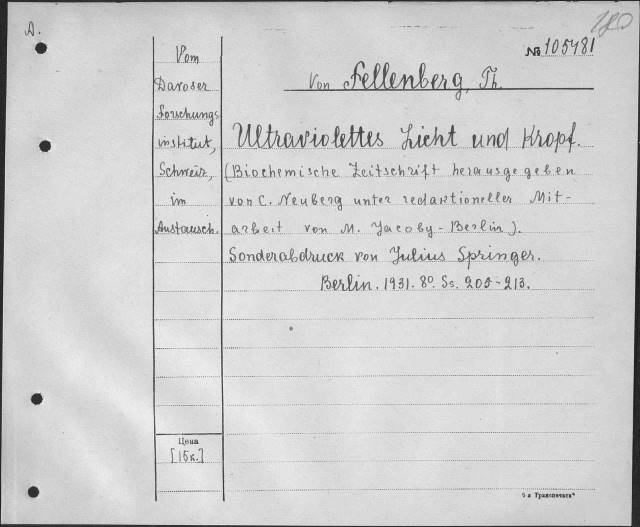 A.
180
№ 105481
von Fellenberg, Th.
Vom
Davoser
Forschungs
institut,
Schweiz,
im
Austausch.
Ultraviolettes Licht und Kropf.
(Biochemische Zeitschrift herausgegeben
von C. Neuberg unter redaktioneller Mit-
arbeit von M. Jacoby-Berlin).
Sonderabdruck von Julius Springer.
Berlin. 1931. 8º. Ss. 205-213.
Цена
[15к.]
5-я Транспечать